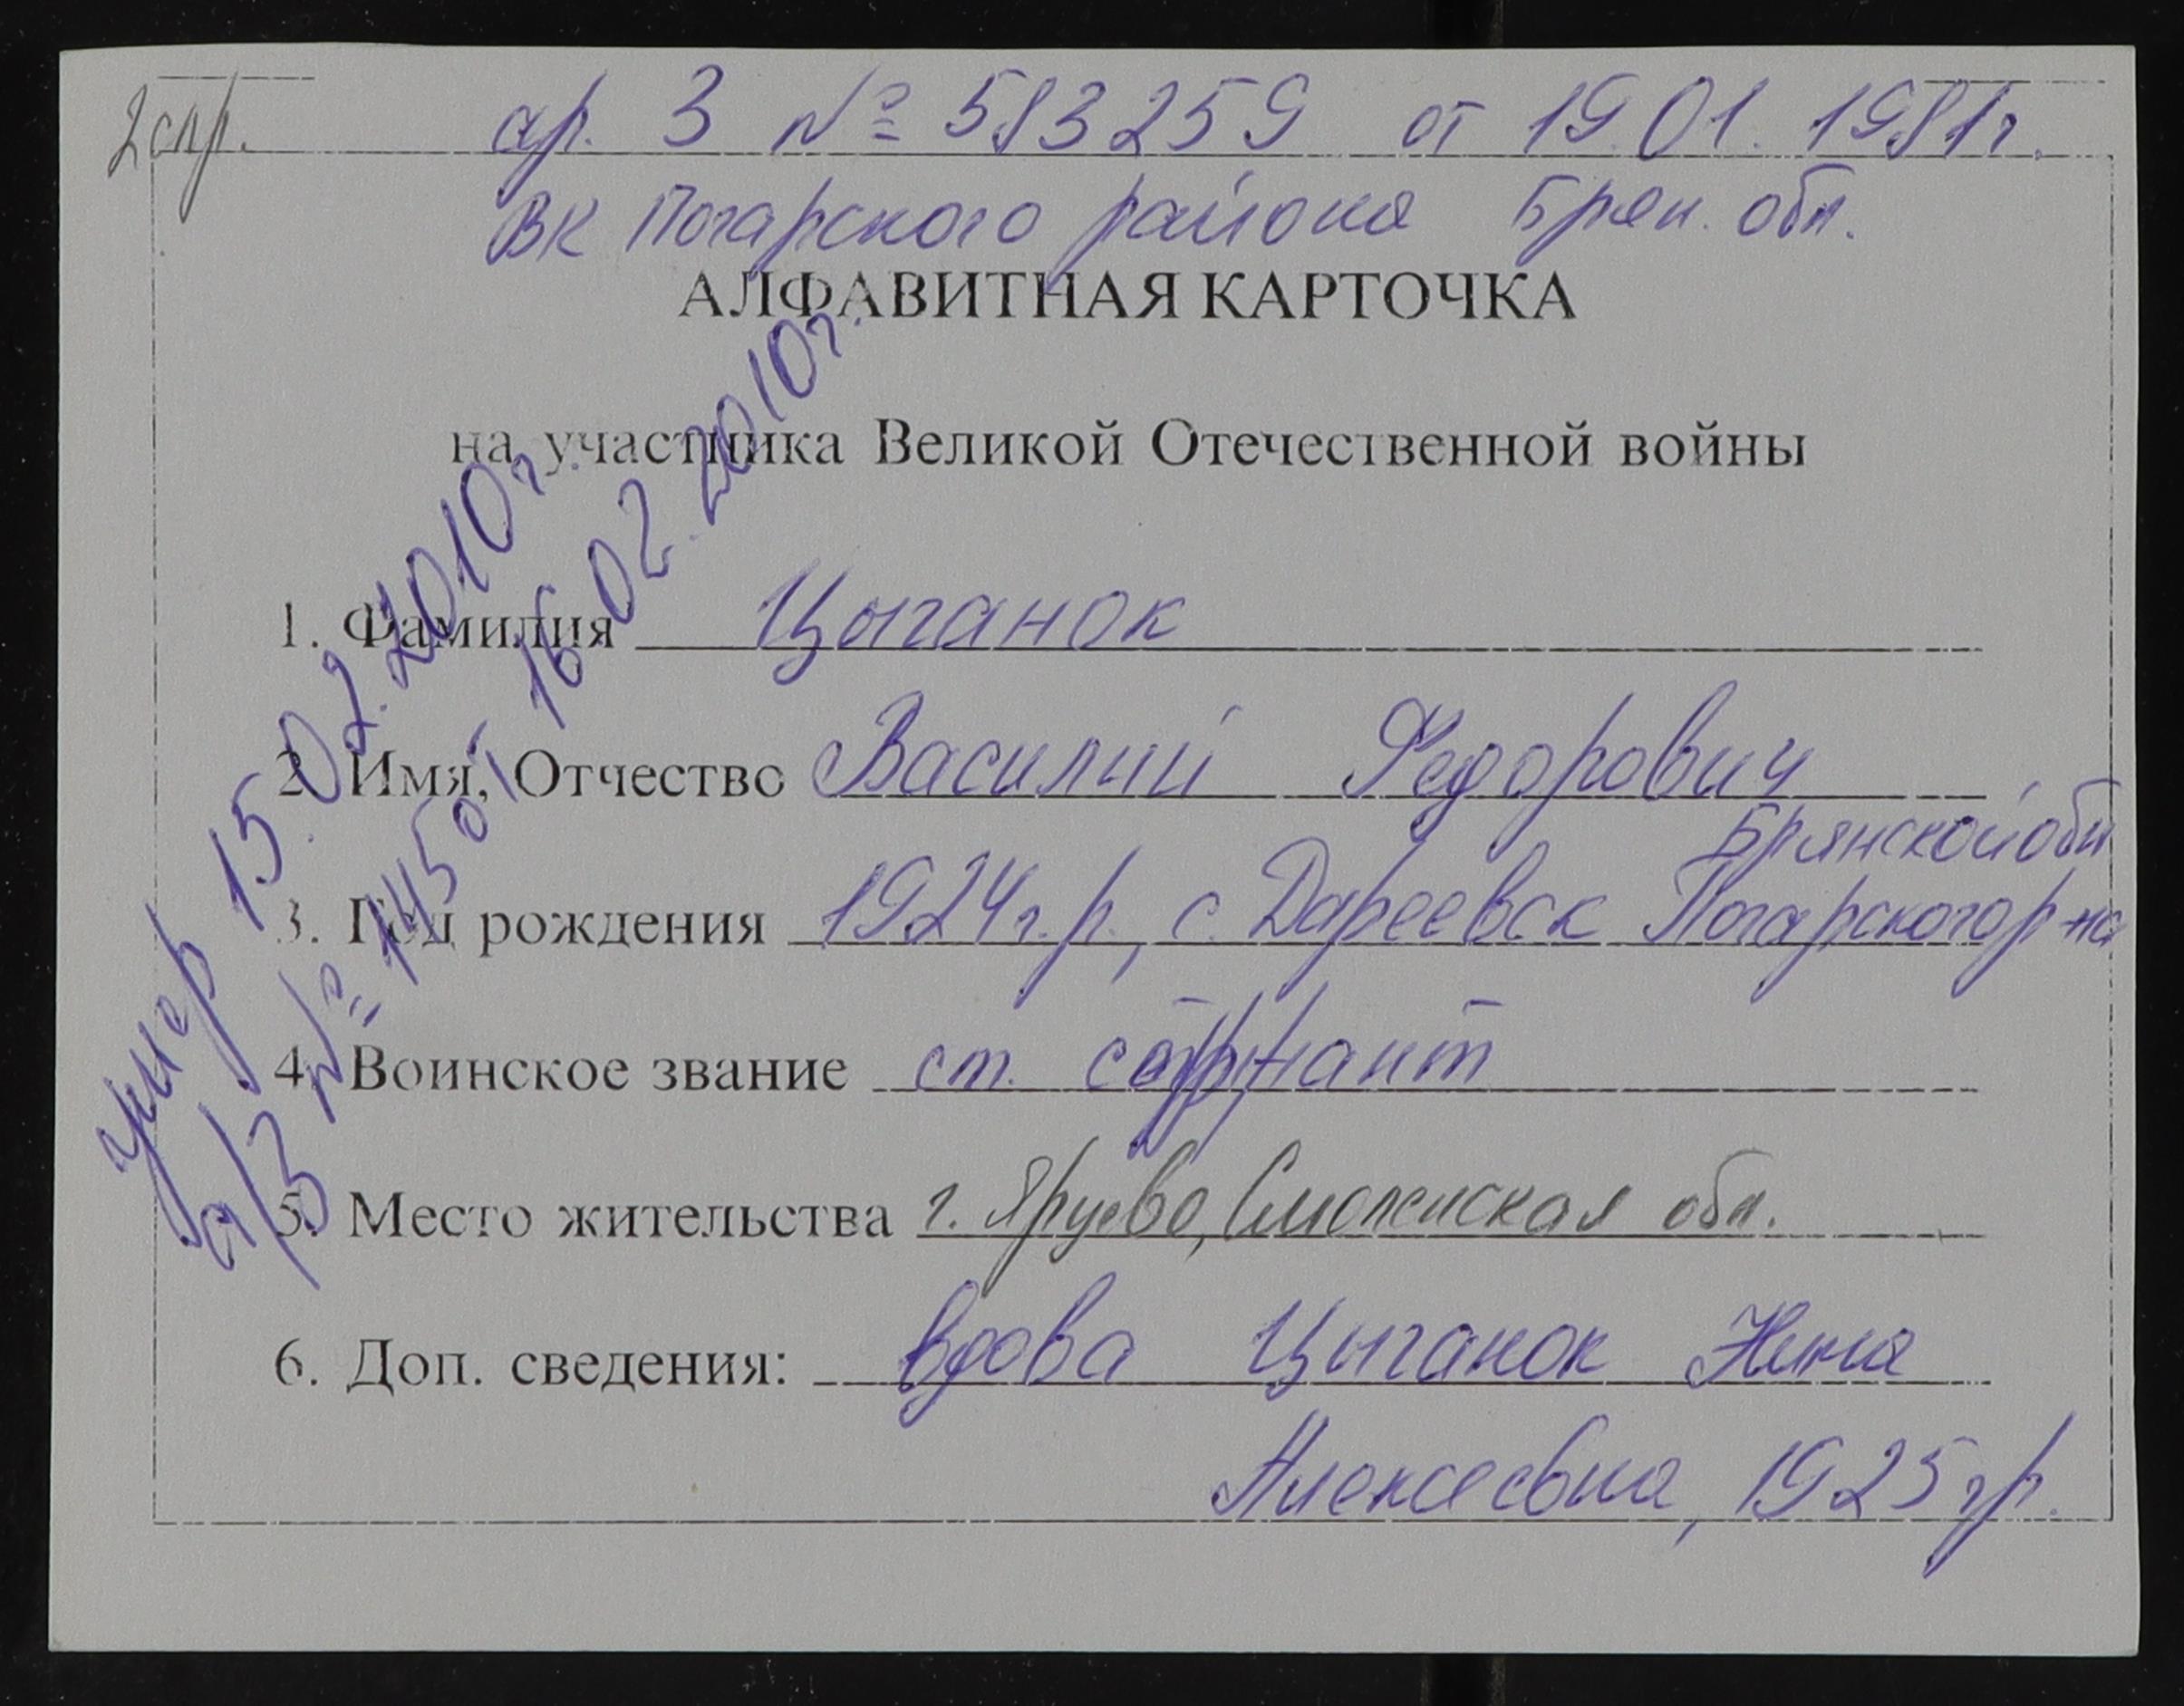 2 спр.
ар. З № 583259 от 19.01.1981г.
ВК Погарского района Брян. обл.
АЛФАВИТНАЯ КАРТОЧКА
на участника Великой Отечественной войны
1. Фамилия Цыганок
2. Имя, Отчество Василий Федорович
Брянской обл
3. Год рождения 1924г.р., с. Дареевск Погарского р-на
4. Воинское звание ст. сержант
5. Место жительства г. Ярцево, Смоленская обл.
6. Доп. сведения: вдова Цыганок Нина
Алексеевна, 1925 гр.
умер 15.02.2010г.
а/З № 145 от 16.02.2010г.